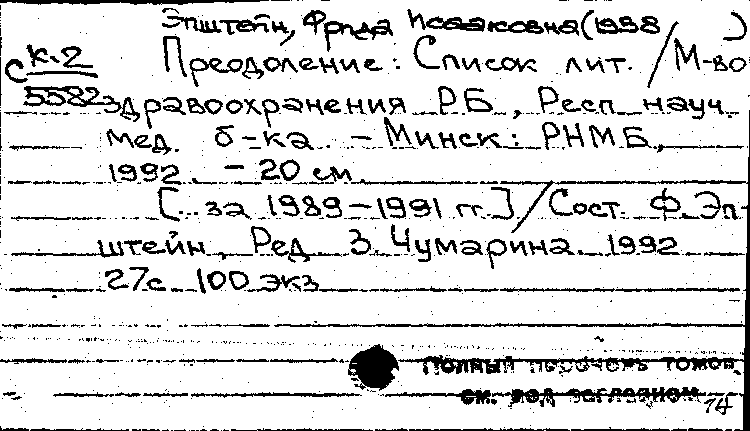 Эпштейн, Фрида Исааковна (1938 )
К.2
С 5582
Преодоление: Список лит. / М-во
здравоохранения РБ, Респ науч.
мед. б-ка. – Минск: РНМБ,
1992. – 20 см.
[... за 1989–1991 гг.] / Сост. Ф. Эп-
штейн, Ред З. Чумарина. 1992
27с 100 экз
Полный перечень томов
см. под заглавием
74